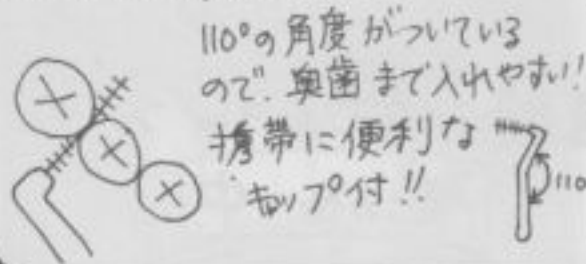 110°の角度がついている
ので、奥歯まで入れやすい!
携帯に便利な
キャップ付!!
110